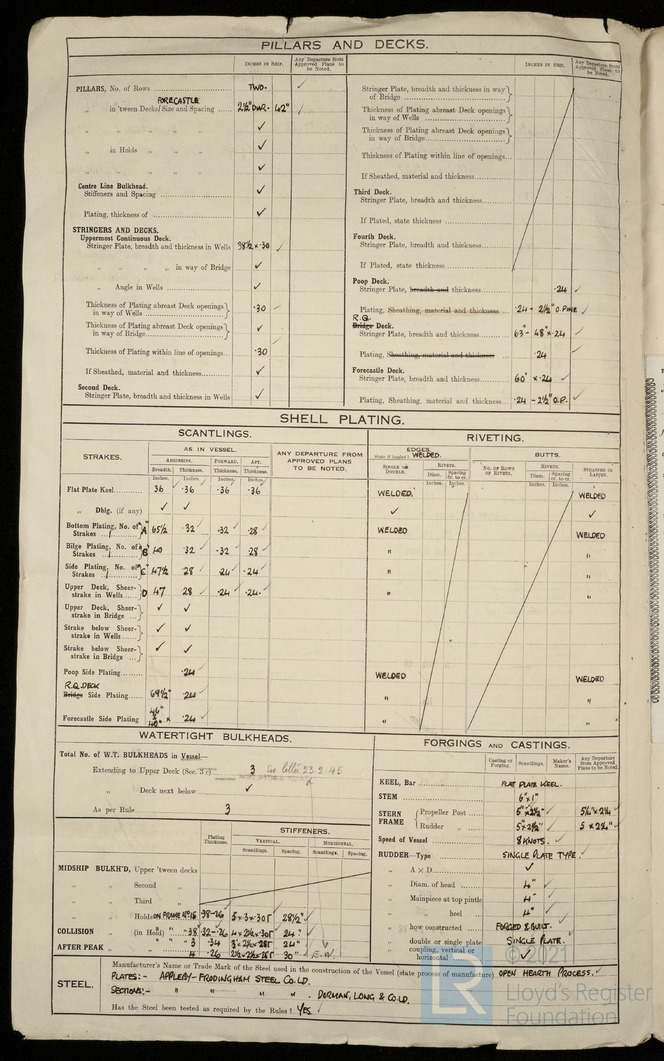 PILLARS AND DECKS.
INCHES IN SHIP. Any Departure from Approved Plans to be Noted.
PILLARS, No. of Rows TWO. ✓
FORECASTLE
„ in 'tween Decks, Size and Spacing 2½" DIAR. 42" ✓
„ „ „ ✓
„ in Holds ✓
„ „ ✓
Centre Line Bulkhead.
Stiffeners and Spacing ✓
Plating, thickness of ✓
STRINGERS AND DECKS.
Uppermost Continuous Deck.
Stringer Plate, breadth and thickness in Wells 38½ × ·30 ✓
„ „ „ „ in way of Bridge ✓
„ Angle in Wells ✓
Thickness of Plating abreast Deck openings in way of Wells ·30 ✓
Thickness of Plating abreast Deck openings in way of Bridge ✓
Thickness of Plating within line of openings ·30
If Sheathed, material and thickness ✓
Second Deck.
Stringer Plate, breadth and thickness in Wells ✓
INCHES IN SHIP. Any Departure from Approved Plans to be Noted.
Stringer Plate, breadth and thickness in way of Bridge
Thickness of Plating abreast Deck openings in way of Wells
Thickness of Plating abreast Deck openings in way of Bridge
Thickness of Plating within line of openings
If Sheathed, material and thickness
Third Deck.
Stringer Plate, breadth and thickness
If Plated, state thickness
Fourth Deck.
Stringer Plate, breadth and thickness
If Plated, state thickness
Poop Deck.
Stringer Plate, breadth and thickness ·24 ✓
Plating, Sheathing, material and thickness ·24 - 2½" O.PINE ✓
R.Q.
Bridge Deck.
Stringer Plate, breadth and thickness 63" - 48" × ·24 ✓
Plating, Sheathing, material and thickness ·24 ✓
Forecastle Deck.
Stringer Plate, breadth and thickness 60" × ·24 ✓
Plating, Sheathing, material and thickness ·24 - 2½" O.P. ✓
SHELL PLATING.
SCANTLINGS. RIVETING.
STRAKES. AS IN VESSEL. ANY DEPARTURE FROM APPROVED PLANS TO BE NOTED. EDGES. WELDED. BUTTS.
AMIDSHIPS. FORWARD. AFT. SINGLE OR DOUBLE. RIVETS. NO. OF ROWS OF RIVETS. RIVETS. STRAPPED OR LAPPED.
Breadth. Thickness. Thickness. Thickness. Diam. Spacing cr. to cr. Diam. Spacing cr. to cr.
Inches. Inches. Inches. Inches. Inches. Inches. Inches. Inches.
Flat Plate Keel 36 ·36 ·36 ·36 WELDED. WELDED
„ Dblg. (if any) ✓ ✓ ✓ ✓
Bottom Plating, No. of Strakes 1 A 65½ ·32 ·32 ·28 WELDED WELDED
Bilge Plating, No. of Strakes 1 B 40 ·32 ·32 ·28 " "
Side Plating, No. of Strakes 1 C 47½ ·28 ·24 ·24 " "
Upper Deck, Sheerstrake in Wells D 47 ·28 ·24 ·24 " "
Upper Deck, Sheerstrake in Bridge ✓ ✓
Strake below Sheerstrake in Wells ✓ ✓
Strake below Sheerstrake in Bridge ✓ ✓
Poop Side Plating ·24 WELDED WELDED
R.Q. DECK
Bridge Side Plating 69½" ·24 " "
Forecastle Side Plating ·24 " "
WATERTIGHT BULKHEADS.
Total No. of W.T. BULKHEADS in Vessel—
Extending to Upper Deck 3 See letter 23.2.45
„ Deck next below ✓
As per Rule 3
Plating Thickness. STIFFENERS.
VERTICAL. HORIZONTAL.
Scantlings. Spacing. Scantlings. Spacing.
MIDSHIP BULKH'D, Upper 'tween decks
„ „ Second „
„ „ Third „
„ „ Holds ON FRAME Nº 16 ·38-·26 5 × 3 × ·305 28½" ✓
COLLISION „ (in Hold) „ 38 ·32-·26 24" ✓
„ „ 3 ·34 24" ✓
AFTER PEAK „ „ 4 ·26 30" ✓
FORGINGS AND CASTINGS.
Casting or Forging. Scantlings. Maker's Name. Any Departure from Approved Plans to be Noted.
KEEL, Bar FLAT PLATE KEEL.
STEM 6" × 1"
STERN FRAME Propeller Post 5" × 2½" ✓
Rudder „ 5" × 2½" ✓
Speed of Vessel 8 KNOTS. ✓
RUDDER—Type SINGLE PLATE TYPE. ✓
„ A × D ✓
„ Diam. of head 4" ✓
„ Mainpiece at top pintle 4" ✓
„ „ heel 4" ✓
„ how constructed FORGED & BUILT. ✓
„ double or single plate SINGLE PLATE.
„ coupling, vertical or horizontal ✓
STEEL. Manufacturer's Name or Trade Mark of the Steel used in the construction of the Vessel (state process of manufacture) OPEN HEARTH PROCESS. ✓
PLATES:- APPLEBY-FRODINGHAM STEEL CO. LD.
SECTIONS:- " " " " . DORMAN, LONG & CO. LD.
Has the Steel been tested as required by the Rules? YES. ✓
© 2021
LR Lloyd's Register
Foundation